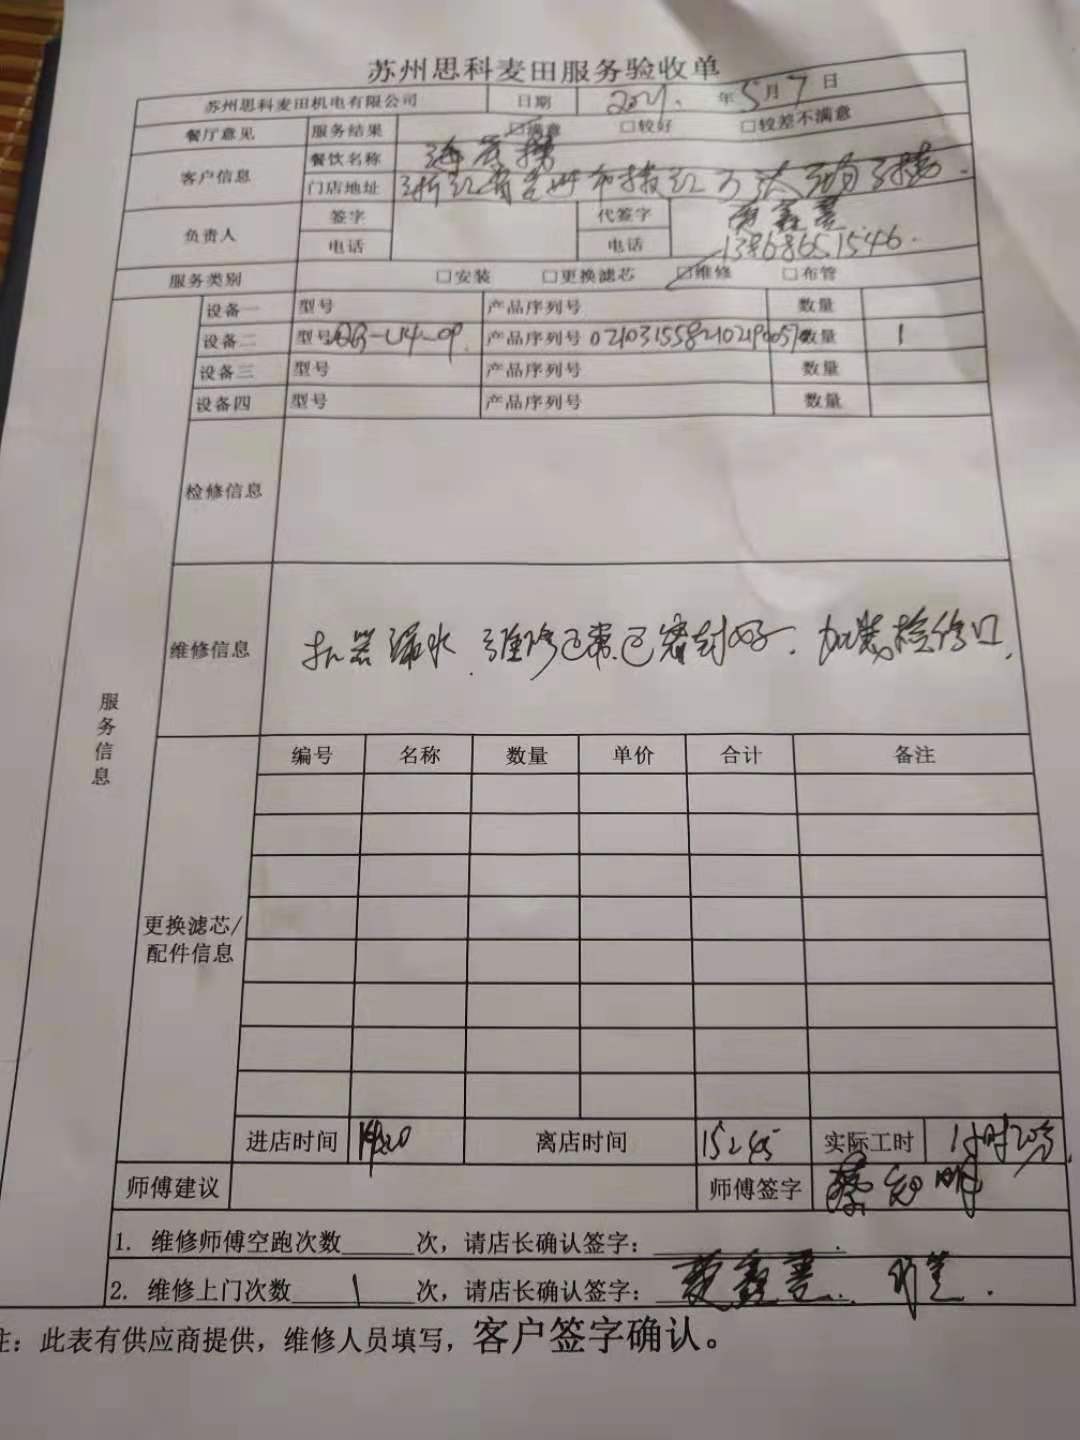 苏州思科麦田服务验收单
苏州思科麦田机电有限公司 日期 2021. 年 5 月 7 日
餐厅意见 服务结果 ☑满意 □较好 □较差不满意
客户信息 餐饮名称
门店地址 浙江省 市 江万达
负责人 签字 代签字
电话 电话 13868651546.
服务类别 □安装 □更换滤芯 ☑维修 □布管
服务信息
设备一 型号 产品序列号 数量
设备二 型号 产品序列号 数量 1
设备三 型号 产品序列号 数量
设备四 型号 产品序列号 数量
检修信息
维修信息 机器漏水.维修正常已密封好.加装检修口.
更换滤芯/
配件信息
编号 名称 数量 单价 合计 备注
进店时间 离店时间 15:45 实际工时 1小时20分.
师傅建议 师傅签字 蔡 明
1. 维修师傅空跑次数 次，请店长确认签字：
2. 维修上门次数 1 次，请店长确认签字：
注：此表有供应商提供，维修人员填写，客户签字确认。